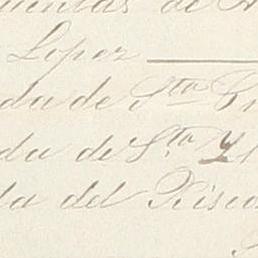 uentas de
Lopez
da de Sta
da de Sta Y
da del Risco